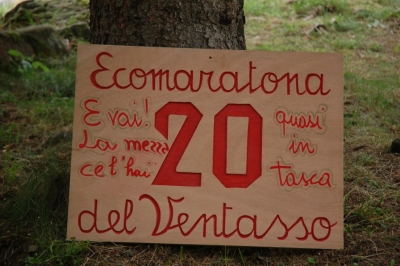 Ecomaratona
E vai! 20 quasi
La mezza in
ce l'hai tasca
del Ventasso